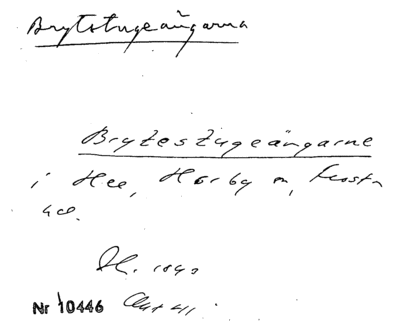 Brytstugeängarna
Brytestugeängarne
i Hee, Hörby m, Frosta
hd.
Sk. 1840
Nr 10446 Akt 41.